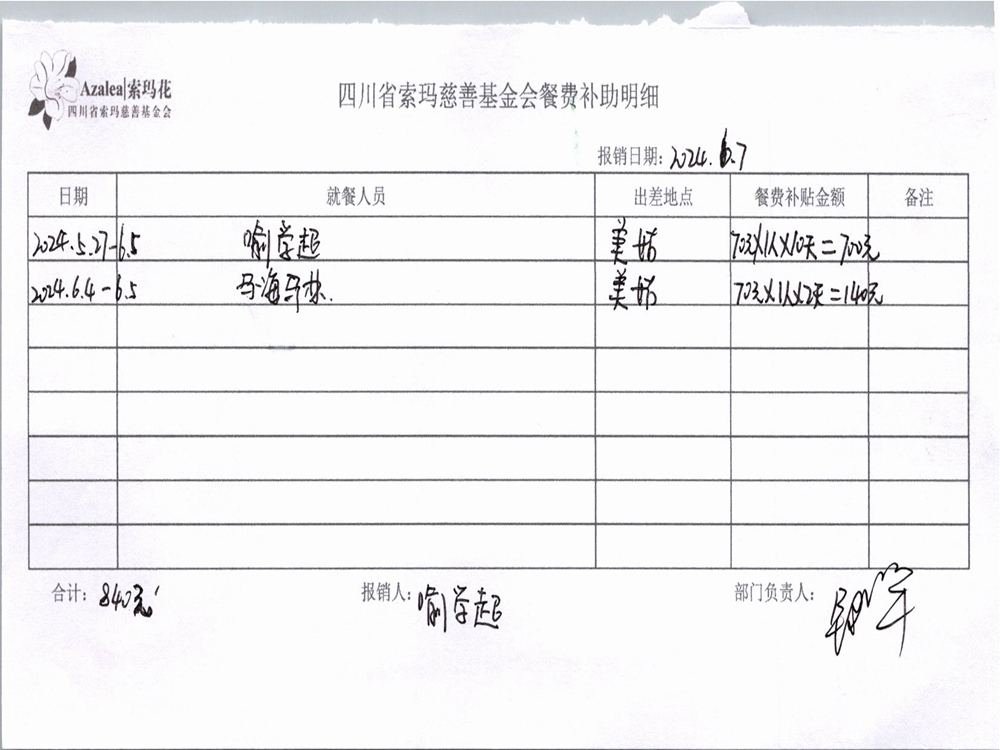 Azalea|索玛花
四川省索玛慈善基金会
四川省索玛慈善基金会餐费补助明细
报销日期: 2024.6.7
日期 就餐人员 出差地点 餐费补贴金额 备注
2024.5.27-6.5 喻学超 美姑 70元X1人X10天=700元
2024.6.4-6.5 马海马林. 美姑 70元X1人X2天=140元
合计: 840元 报销人: 喻学超 部门负责人: